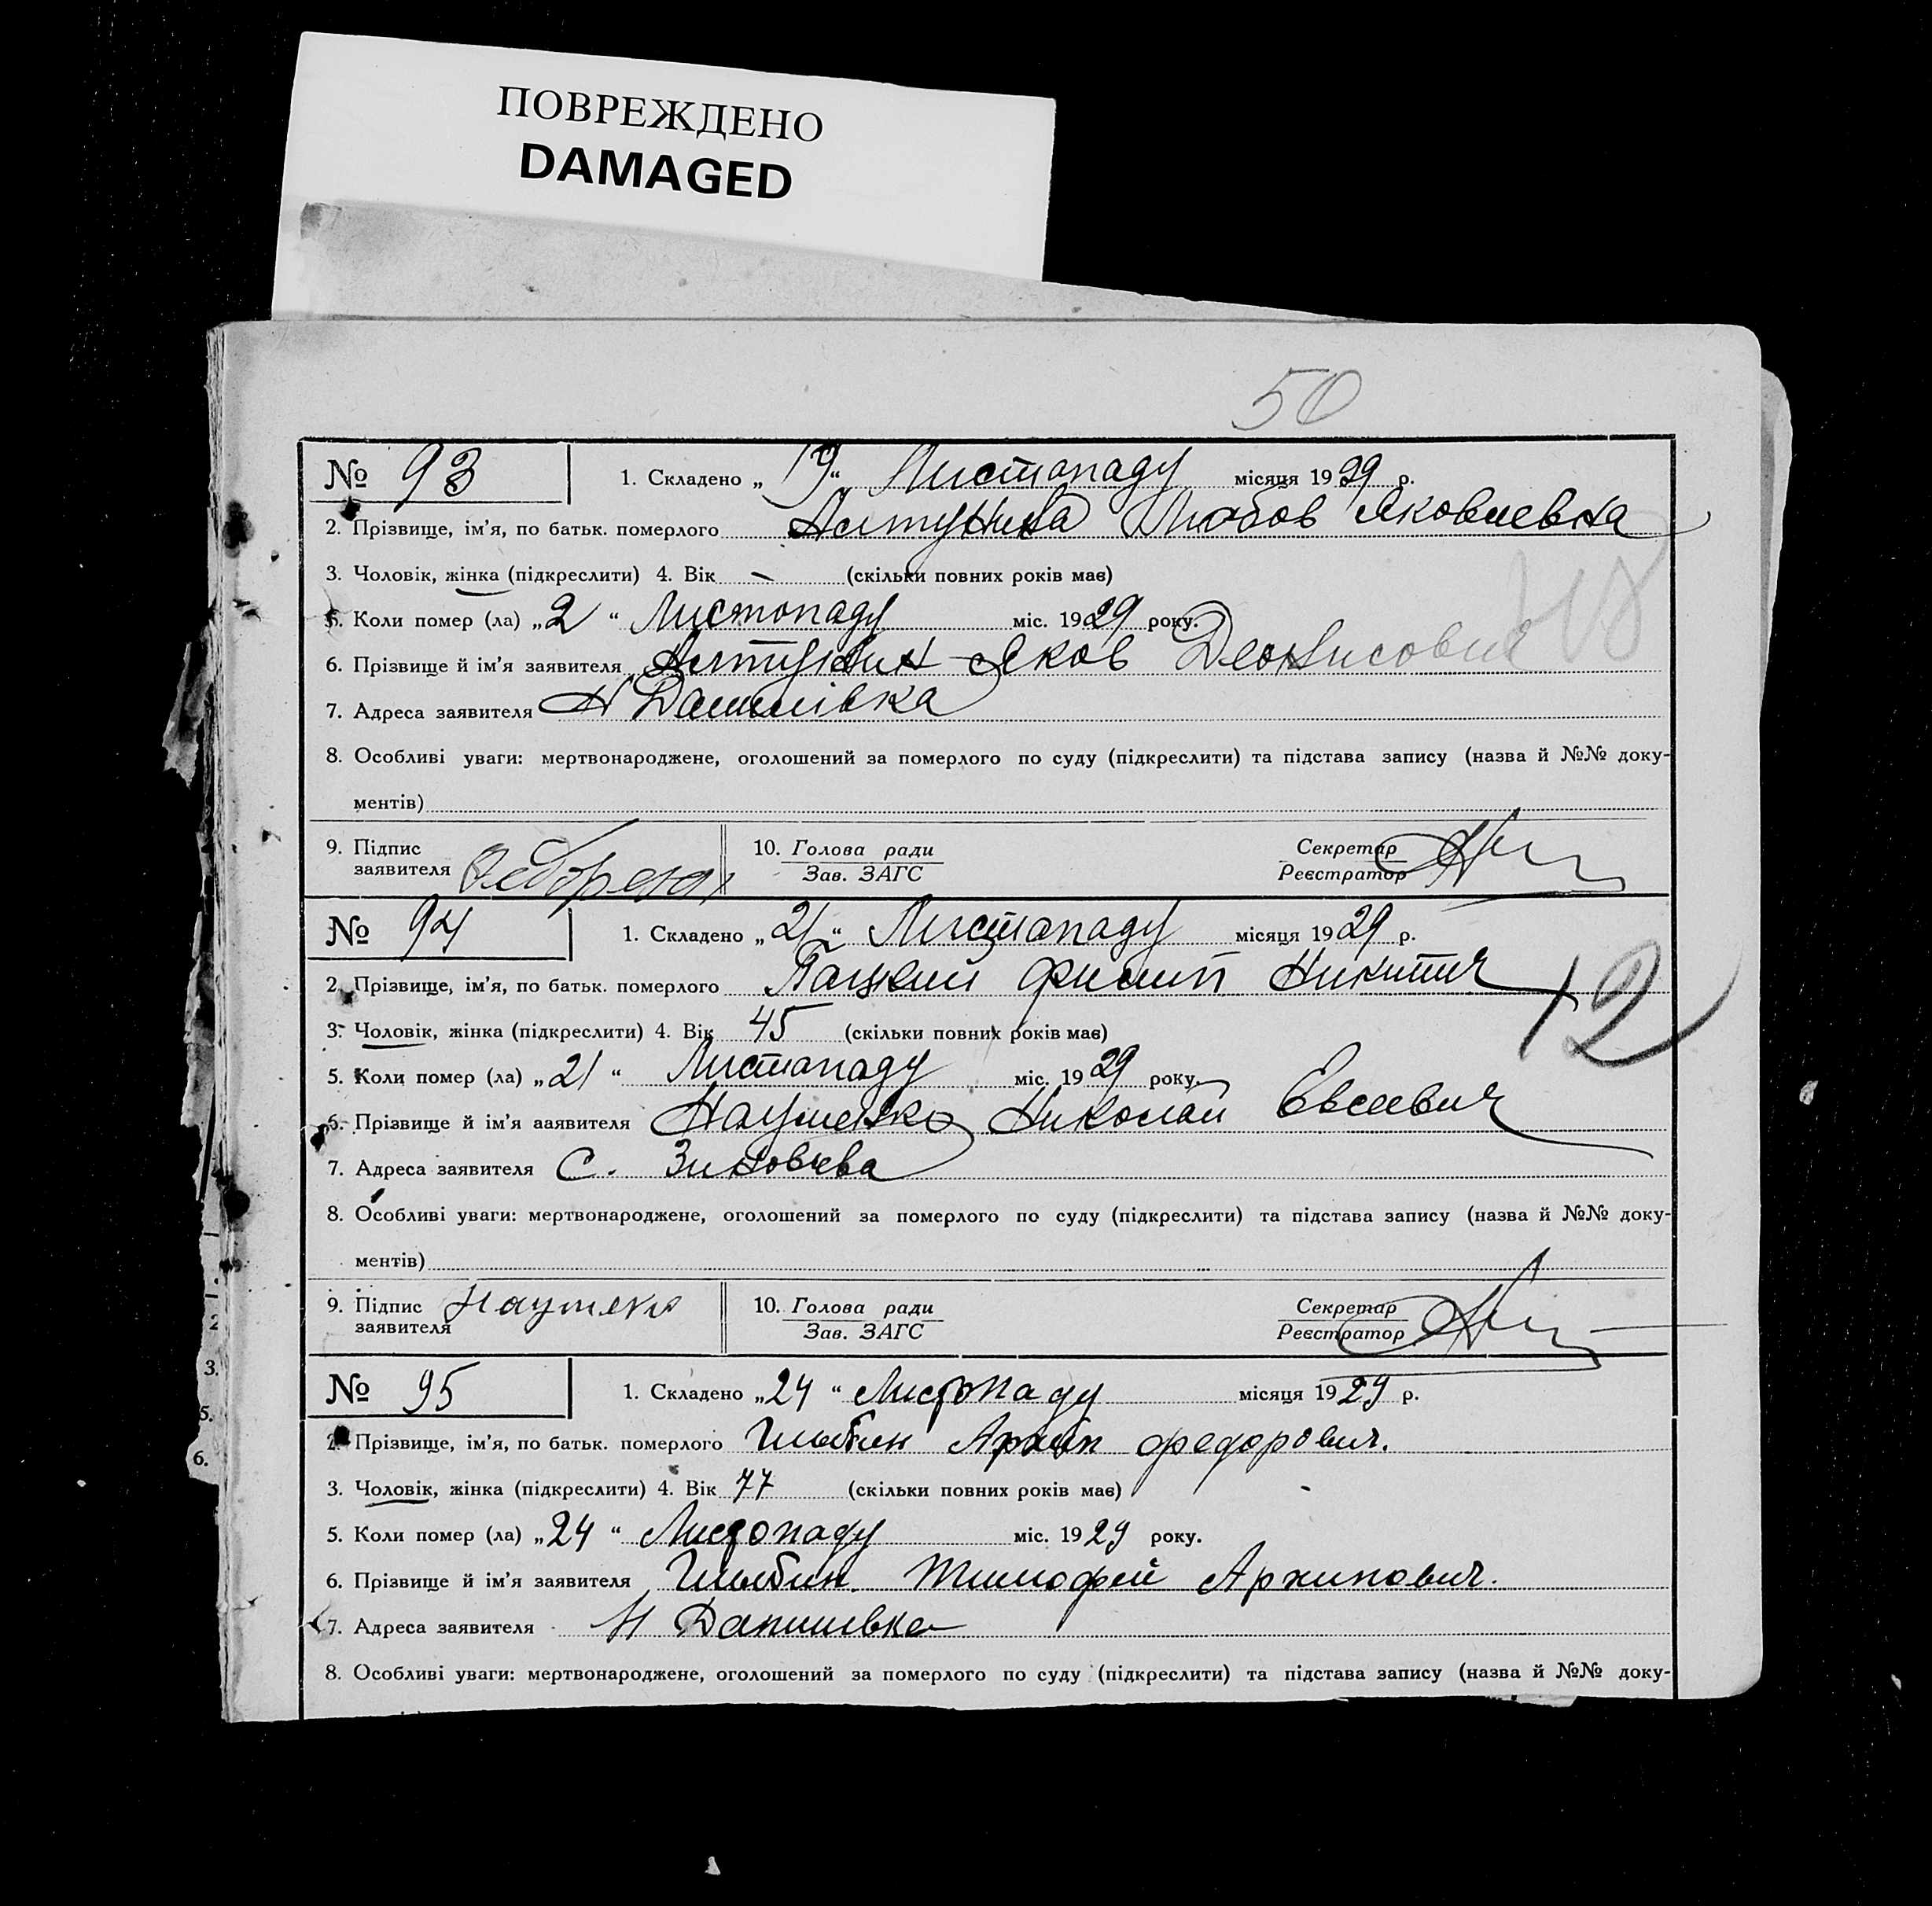 ПОВРЕЖДЕНО
DAMAGED
50
№ 93 1. Складено „19“ Листопаду місяця 1929 р.
2. Прізвище, ім’я, по батьк. померлого Алтунина Любов Яковлевна
3. Чоловік, жінка (підкреслити) 4. Вік – (скільки повних років має)
5. Коли помер (ла) „2“ Листопаду міс. 1929 року.
6. Прізвище й ім’я заявителя Алтунин Яков Денисович
7. Адреса заявителя Н Данилівка
8. Особливі уваги: мертвонароджене, оголошений за померлого по суду (підкреслити) та підстава запису (назва й №№ доку-
ментів)
9. Підпис заявителя
10. Голова ради
Зав. ЗАГС
Секретар
Реєстратор
№ 94 1. Складено „21“ Листопаду місяця 1929 р.
2. Прізвище, ім’я, по батьк. померлого Пацкий Филип Никитич
12
3. Чоловік, жінка (підкреслити) 4. Вік 45 (скільки повних років має)
5. Коли помер (ла) „21“ Листопаду міс. 1929 року.
6. Прізвище й ім’я ааявителя Науменко Николай Евсеевич
7. Адреса заявителя с. Зиновьева
8. Особливі уваги: мертвонароджене, оголошений за померлого по суду (підкреслити) та підстава запису (назва й №№ доку-
ментів)
9. Підпис заявителя
10. Голова ради
Зав. ЗАГС
Секретар
Реєстратор
№ 95 1. Складено „24“ Листопаду місяця 1929 р.
2. Прізвище, ім’я, по батьк. померлого Глыбин Архип Федорович.
3. Чоловік, жінка (підкреслити) 4. Вік 77 (скільки повних років має)
5. Коли помер (ла) „24“ Листопаду міс. 1929 року.
6. Прізвище й ім’я заявителя Глыбин Тимофей Архипович.
7. Адреса заявителя Н Данилівка
8. Особливі уваги: мертвонароджене, оголошений за померлого по суду (підкреслити) та підстава запису (назва й №№ доку-